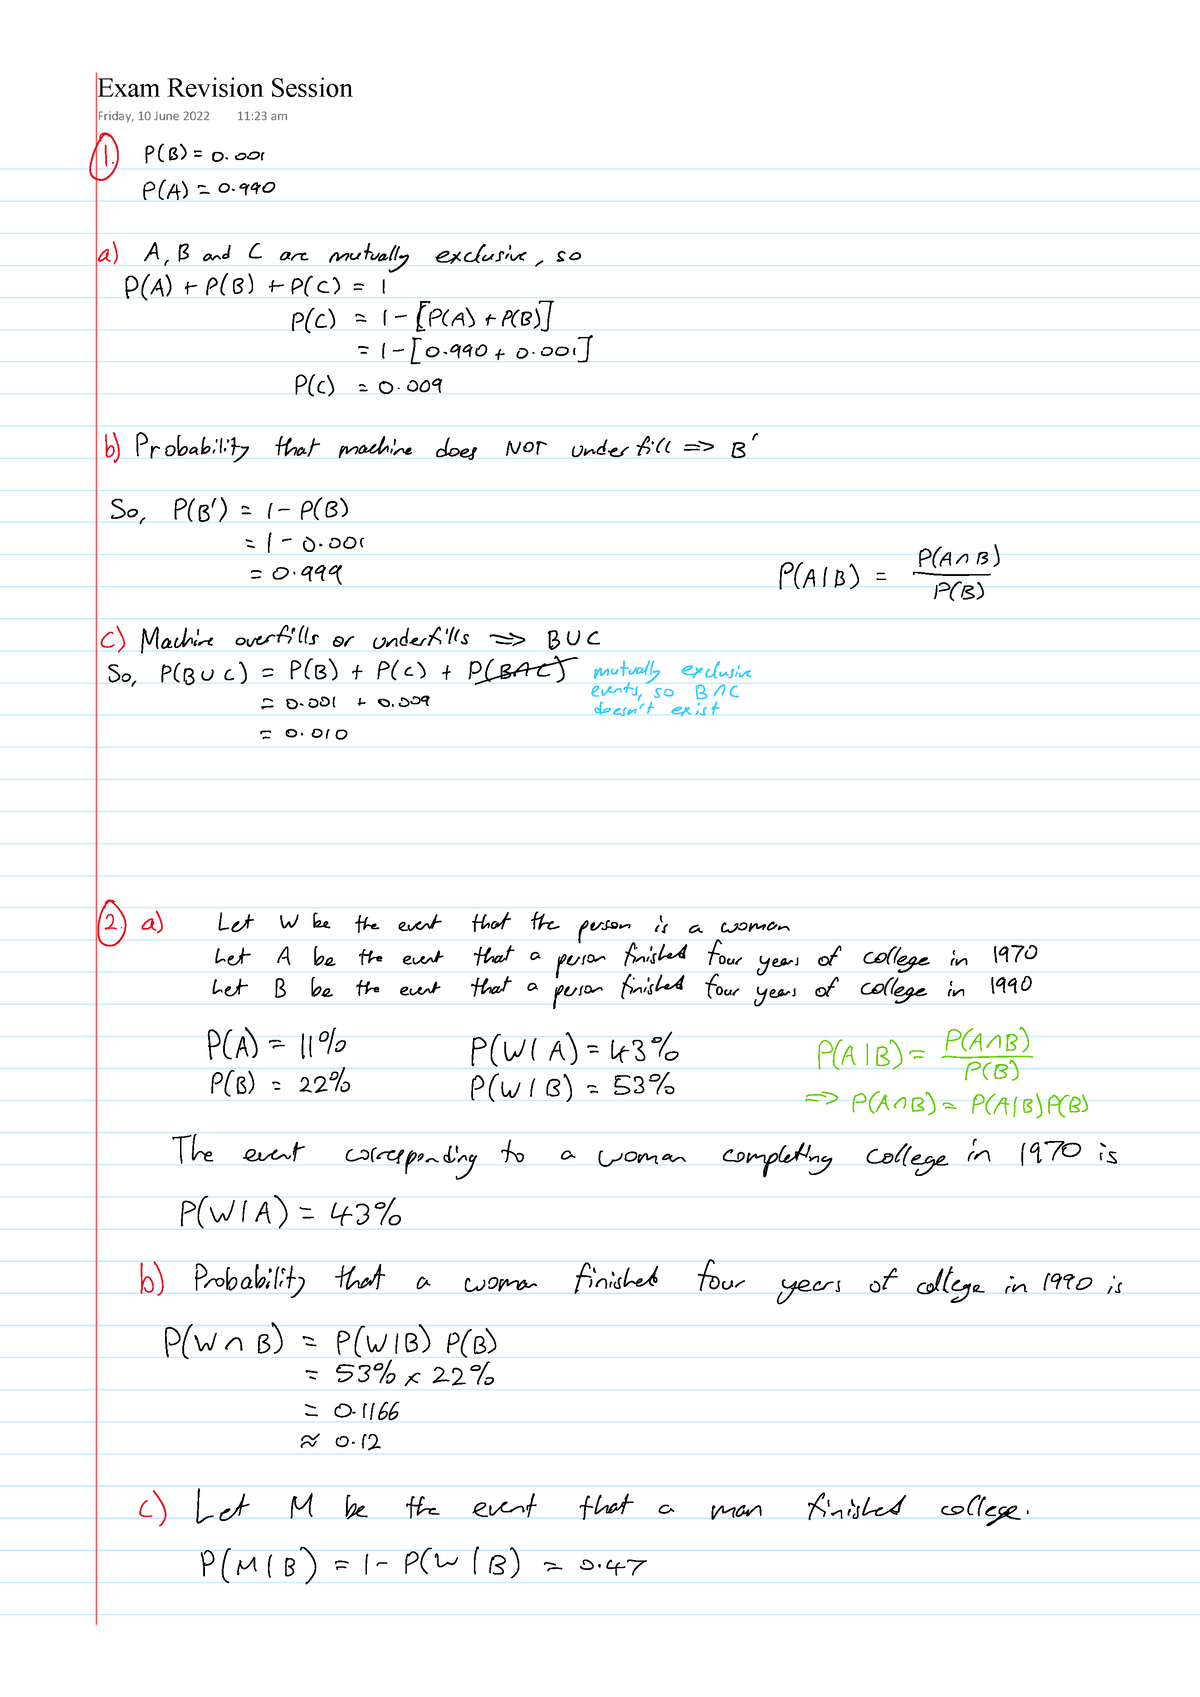 Exam Revision Session
Friday, 10 June 2022 11:23 am
1. P(B) = 0.001
P(A) = 0.990
a) A, B and C are mutually exclusive, so
P(A) + P(B) + P(C) = 1
P(C) = 1 - [P(A) + P(B)]
= 1 - [0.990 + 0.001]
P(C) = 0.009
b) Probability that machine does NOT underfill => B'
So, P(B') = 1 - P(B)
= 1 - 0.001
= 0.999
P(A|B) = P(A∩B) / P(B)
c) Machine overfills or underfills => B∪C
So, P(B∪C) = P(B) + P(C) + P(B∩C) mutually exclusive
events, so B∩C
doesn't exist
= 0.001 + 0.009
= 0.010
2. a) Let W be the event that the person is a woman
Let A be the event that a person finished four years of college in 1970
Let B be the event that a person finished four years of college in 1990
P(A) = 11% P(W|A) = 43%
P(B) = 22% P(W|B) = 53%
P(A|B) = P(A∩B) / P(B)
=> P(A∩B) = P(A|B)P(B)
The event corresponding to a woman completing college in 1970 is
P(W|A) = 43%
b) Probability that a woman finished four years of college in 1990 is
P(W∩B) = P(W|B) P(B)
= 53% × 22%
= 0.1166
≈ 0.12
c) Let M be the event that a man finished college.
P(M|B) = 1 - P(W|B) = 0.47